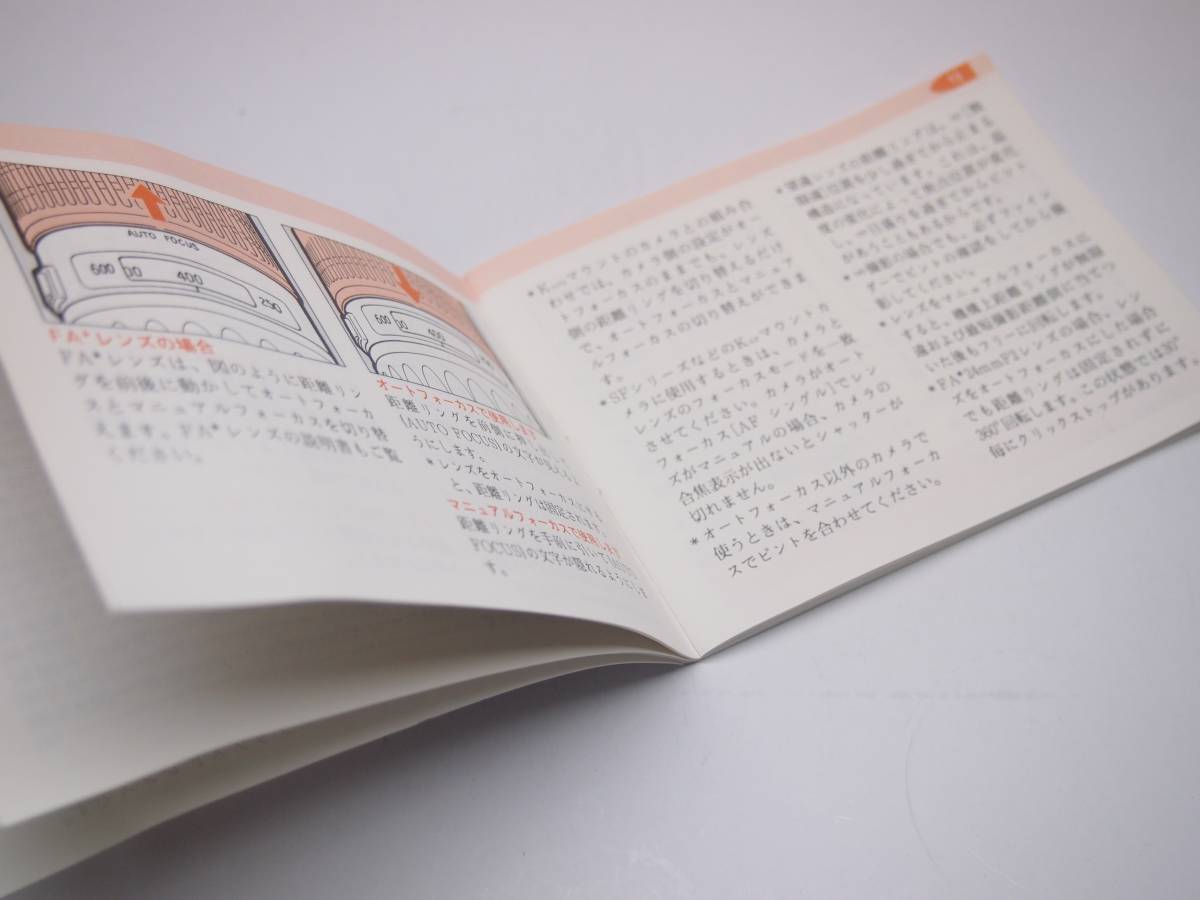 AUTO FOCUS
600 400 250
FA*レンズの場合
FA*レンズは、図のように距離リン
グを前後に動かしてオートフォーカ
スとマニュアルフォーカスを切り替
えます。FA*レンズの説明書もご覧
ください。
600 400
オートフォーカスで使用します
距離リングを前側に押し
[AUTO FOCUS]の文字が見える
うにします。
*レンズをオートフォーカスにする
と、距離リングは固定されます。
マニュアルフォーカスで使用します
距離リングを手前に引いて[AUTO
FOCUS]の文字が隠れるようにしま
す。
マウントのカメラとの組み合
わせでは、カメラ側の設定がオー
トフォーカスのままでも、レンズ
側の距離リングを切り替えるだけ
で、オートフォーカスとマニュア
ルフォーカスの切り替えができま
す。
*SFシリーズなどのKマウントカ
メラに使用するときは、カメラと
レンズのフォーカスモードを一致
させてください。カメラがオート
フォーカス[AF シングル]でレン
ズがマニュアルの場合、カメラの
合焦表示が出ないとシャッターが
切れません。
*オートフォーカス以外のカメラで
使うときは、マニュアルフォーカ
スでピントを合わせてください。
*望遠レンズの距離リングは、∞(無
限遠)位置も少し過ぎてから止まる
構造になっています。これは、温
度の変化によって
し、∞目盛りを過ぎてからピント
があうこともあるからです。
*∞撮影の場合でも、必ずファイン
ダーでピントの確認をしてから撮
影してください。
*レンズをマニュアルフォーカスに
すると、機構上距離リングが無限
遠および最短撮影距離側に当てつ
いた後もフリーに回転します。
*FA*24mmF2レンズの場合、レン
ズをオートフォーカスにした場合
でも距離リングは固定されずに
360°回転します。この状態では30°
毎にクリックストップがあります。